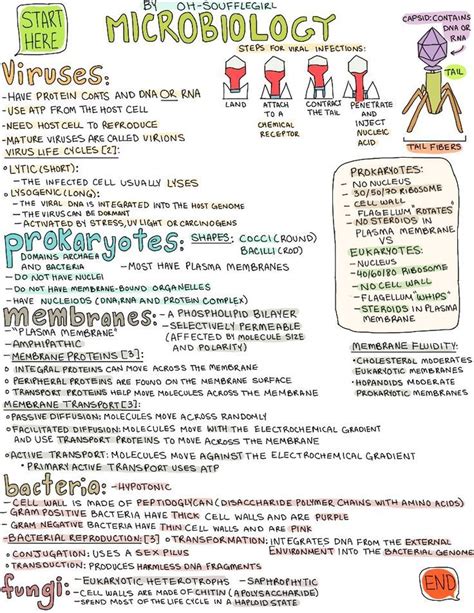 START HERE
BY OH-SOUFFLEGIRL
MICROBIOLOGY
STEPS FOR VIRAL INFECTIONS:
LAND
ATTACH TO A CHEMICAL RECEPTOR
CONTRACT THE TAIL
PENETRATE AND INJECT NUCLEIC ACID
CAPSID: CONTAINS DNA OR RNA
TAIL
TAIL FIBERS
Viruses:
-HAVE PROTEIN COATS AND DNA OR RNA
-USE ATP FROM THE HOST CELL
-NEED HOST CELL TO REPRODUCE
-MATURE VIRUSES ARE CALLED VIRIONS
VIRUS LIFE CYCLES [2]:
○ LYTIC (SHORT):
-THE INFECTED CELL USUALLY LYSES
○ LYSOGENIC (LONG):
-THE VIRAL DNA IS INTEGRATED INTO THE HOST GENOME
-THE VIRUS CAN BE DORMANT
-ACTIVATED BY STRESS, UV LIGHT OR CARCINOGENS
PROKARYOTES:
- NO NUCLEUS
- 30/50/70 RIBOSOME
- CELL WALL
- FLAGELLUM "ROTATES"
- NO STEROIDS IN PLASMA MEMBRANE
VS
EUKARYOTES:
-NUCLEUS
-40/60/80 RIBOSOME
-NO CELL WALL
-FLAGELLUM "WHIPS"
-STEROIDS IN PLASMA MEMBRANE
prokaryotes:
SHAPES: COCCI (ROUND)
BACILLI (ROD)
DOMAINS ARCHAEA AND BACTERIA
-MOST HAVE PLASMA MEMBRANES
-DO NOT HAVE NUCLEI
-DO NOT HAVE MEMBRANE-BOUND ORGANELLES
-HAVE NUCLEOIDS (DNA, RNA AND PROTEIN COMPLEX)
membranes:
-A PHOSPHOLIPID BILAYER
-SELECTIVELY PERMEABLE
(AFFECTED BY MOLECULE SIZE AND POLARITY)
-"PLASMA MEMBRANE"
-AMPHIPATHIC
-MEMBRANE PROTEINS [3]:
○ INTEGRAL PROTEINS CAN MOVE ACROSS THE MEMBRANE
○ PERIPHERAL PROTEINS ARE FOUND ON THE MEMBRANE SURFACE
○ TRANSPORT PROTEINS HELP MOVE MOLECULES ACROSS THE MEMBRANE
MEMBRANE FLUIDITY:
•CHOLESTEROL MODERATES EUKARYOTIC MEMBRANES
•HOPANOIDS MODERATE PROKARYOTIC MEMBRANES
MEMBRANE TRANSPORT [3]:
○PASSIVE DIFFUSION: MOLECULES MOVE ACROSS RANDOMLY
○FACILITATED DIFFUSION: MOLECULES MOVE WITH THE ELECTROCHEMICAL GRADIENT
AND USE TRANSPORT PROTEINS TO MOVE ACROSS THE MEMBRANE
○ACTIVE TRANSPORT: MOLECULES MOVE AGAINST THE ELECTROCHEMICAL GRADIENT
•PRIMARY ACTIVE TRANSPORT USES ATP
bacteria:
-HYPOTONIC
-CELL WALL IS MADE OF PEPTIDOGLYCAN (DISACCHARIDE POLYMER CHAINS WITH AMINO ACIDS)
-GRAM POSITIVE BACTERIA HAVE THICK CELL WALLS AND ARE PURPLE
-GRAM NEGATIVE BACTERIA HAVE THIN CELL WALLS AND ARE PINK
-BACTERIAL REPRODUCTION: [3]
○TRANSFORMATION: INTEGRATES DNA FROM THE EXTERNAL ENVIRONMENT INTO THE BACTERIAL GENOME
○ CONJUGATION: USES A SEX PILUS
○ TRANSDUCTION: PRODUCES HARMLESS DNA FRAGMENTS
fungi:
-EUKARYOTIC HETEROTROPHS
-SAPROPHYTIC
-CELL WALLS ARE MADE OF CHITIN (APOLYSACCHARIDE)
-SPEND MOST OF THE LIFE CYCLE IN A HAPLOID STATE
END